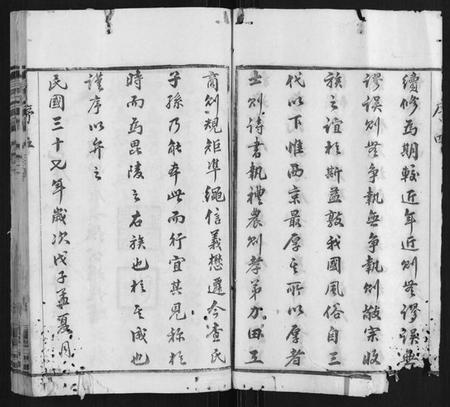 序四
續修為期較近年近則無謬誤無
謬誤則無爭執無爭執則敬宗收
族之誼於斯益敦我國風俗自三
代以下惟西京最厚其所以厚者
士則詩書執禮農則孝弟力田工
商則規矩準繩信義懋遷今查氏
子孫乃能奉此而行宜其見稱於
時而為毘陵之右族也於其成也
謹序以弁之
民國三十七年歲次戊子孟夏月
序五